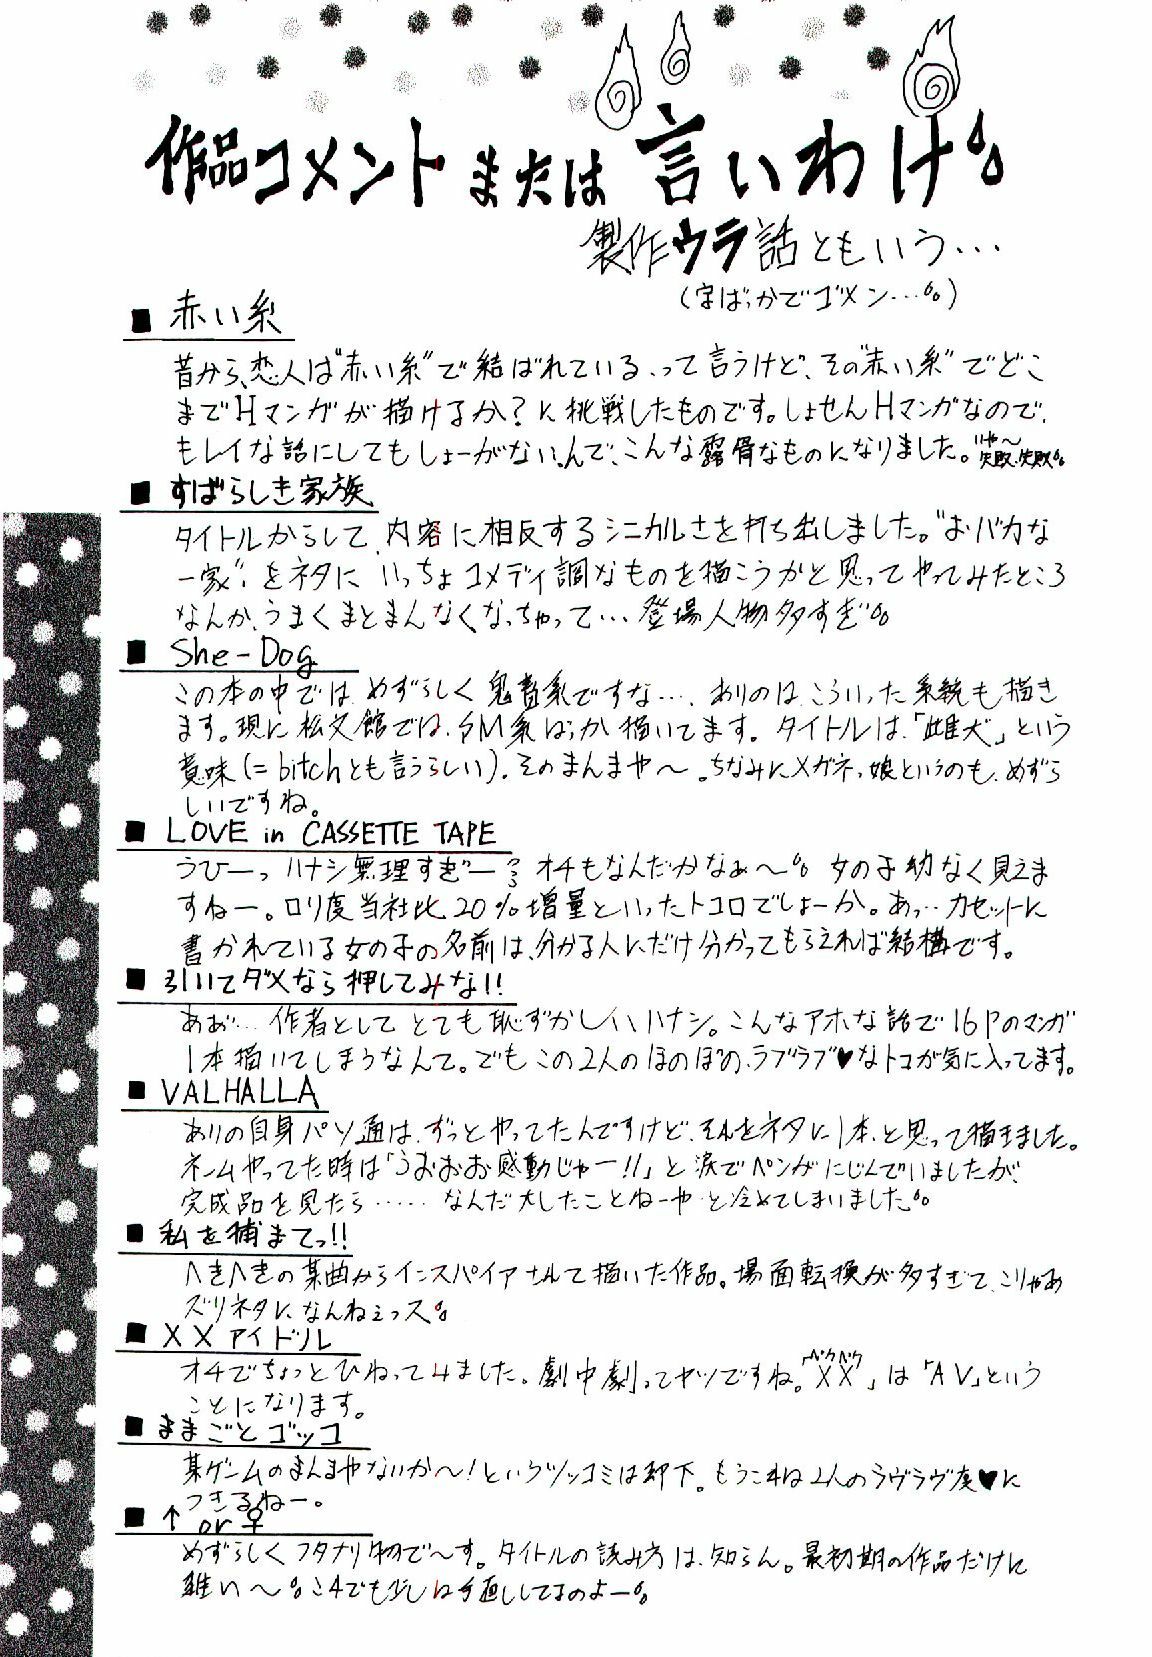 作品コメント または 言いわけ
製作ウラ話ともいう…
(字ばっかでゴメン…)
■ 赤い糸
昔から、恋人は"赤い糸"で結ばれている、って言うけど、その"赤い糸"でどこ
までHマンガが描けるか?に挑戦したものです。しょせんHマンガなので、
キレイな話にしてもしょーがないんで、こんな露骨なものになりました。いや〜失敗、失敗
■ すばらしき家族
タイトルからして、内容に相反するシニカルさを打ち出しました。"おバカな
一家"をネタに いっちょコメディ調なものを描こうかと思ってやってみたところ
なんか、うまくまとまんなくなっちゃって…登場人物多すぎ
■ She-Dog
この本の中では、めずらしく鬼畜系ですな…。ありのは、こういった系統も描き
ます。現に松文館では、SM系ばっか描いてます。タイトルは、「雌犬」という
意味(=bitchとも言うらしい)。そのまんまや〜。ちなみにメガネっ娘というのも、めずら
しいですね。
■ LOVE in CASSETTE TAPE
うひーっ ハナシ無理すぎー オチもなんだかなぁ〜 女の子幼なく見えま
すねー。ロリ度当社比20%増量といったトコロでしょーか。あっ…カセットに
書かれている女の子の名前は、分かる人にだけ分かってもらえれば結構です。
■ 引いてダメなら押してみな!!
あぁ… 作者として とても恥ずかしいハナシ。こんなアホな話で16Pのマンガ
1本描いてしまうなんて。でも この2人のほのぼの、ラブラブ♥なトコが気に入ってます。
■ VALHALLA
ありの自身パソ通は、ずっとやってたんですけど、それをネタに1本、と思って描きました。
ネームやってた時は「うおおお感動じゃー!!」と涙でペンがにじんでいましたが、
完成品を見たら……なんだ大したことねーや と冷めてしまいました。
■ 私を捕まてっ!!
へきへきの某曲からインスパイアされて描いた作品。場面転換が多すぎて、こりゃあ
ズリネタに、なんねぇっス
■ XXアイドル
オチでちょっとひねってみました。劇中劇ってヤツですね。「XX」は「AV」という
ことになります。
■ ままごとゴッコ
某ゲームのまんまやないか〜!というツッコミは却下。もうこれは2人のラヴラヴ度♥に
つきるねー。
■ ↑ or ♀
めずらしくフタナリ物で〜す。タイトルの読み方は、知らん。最初期の作品だけに
雑い〜 これでも少しは手直ししてるのよー